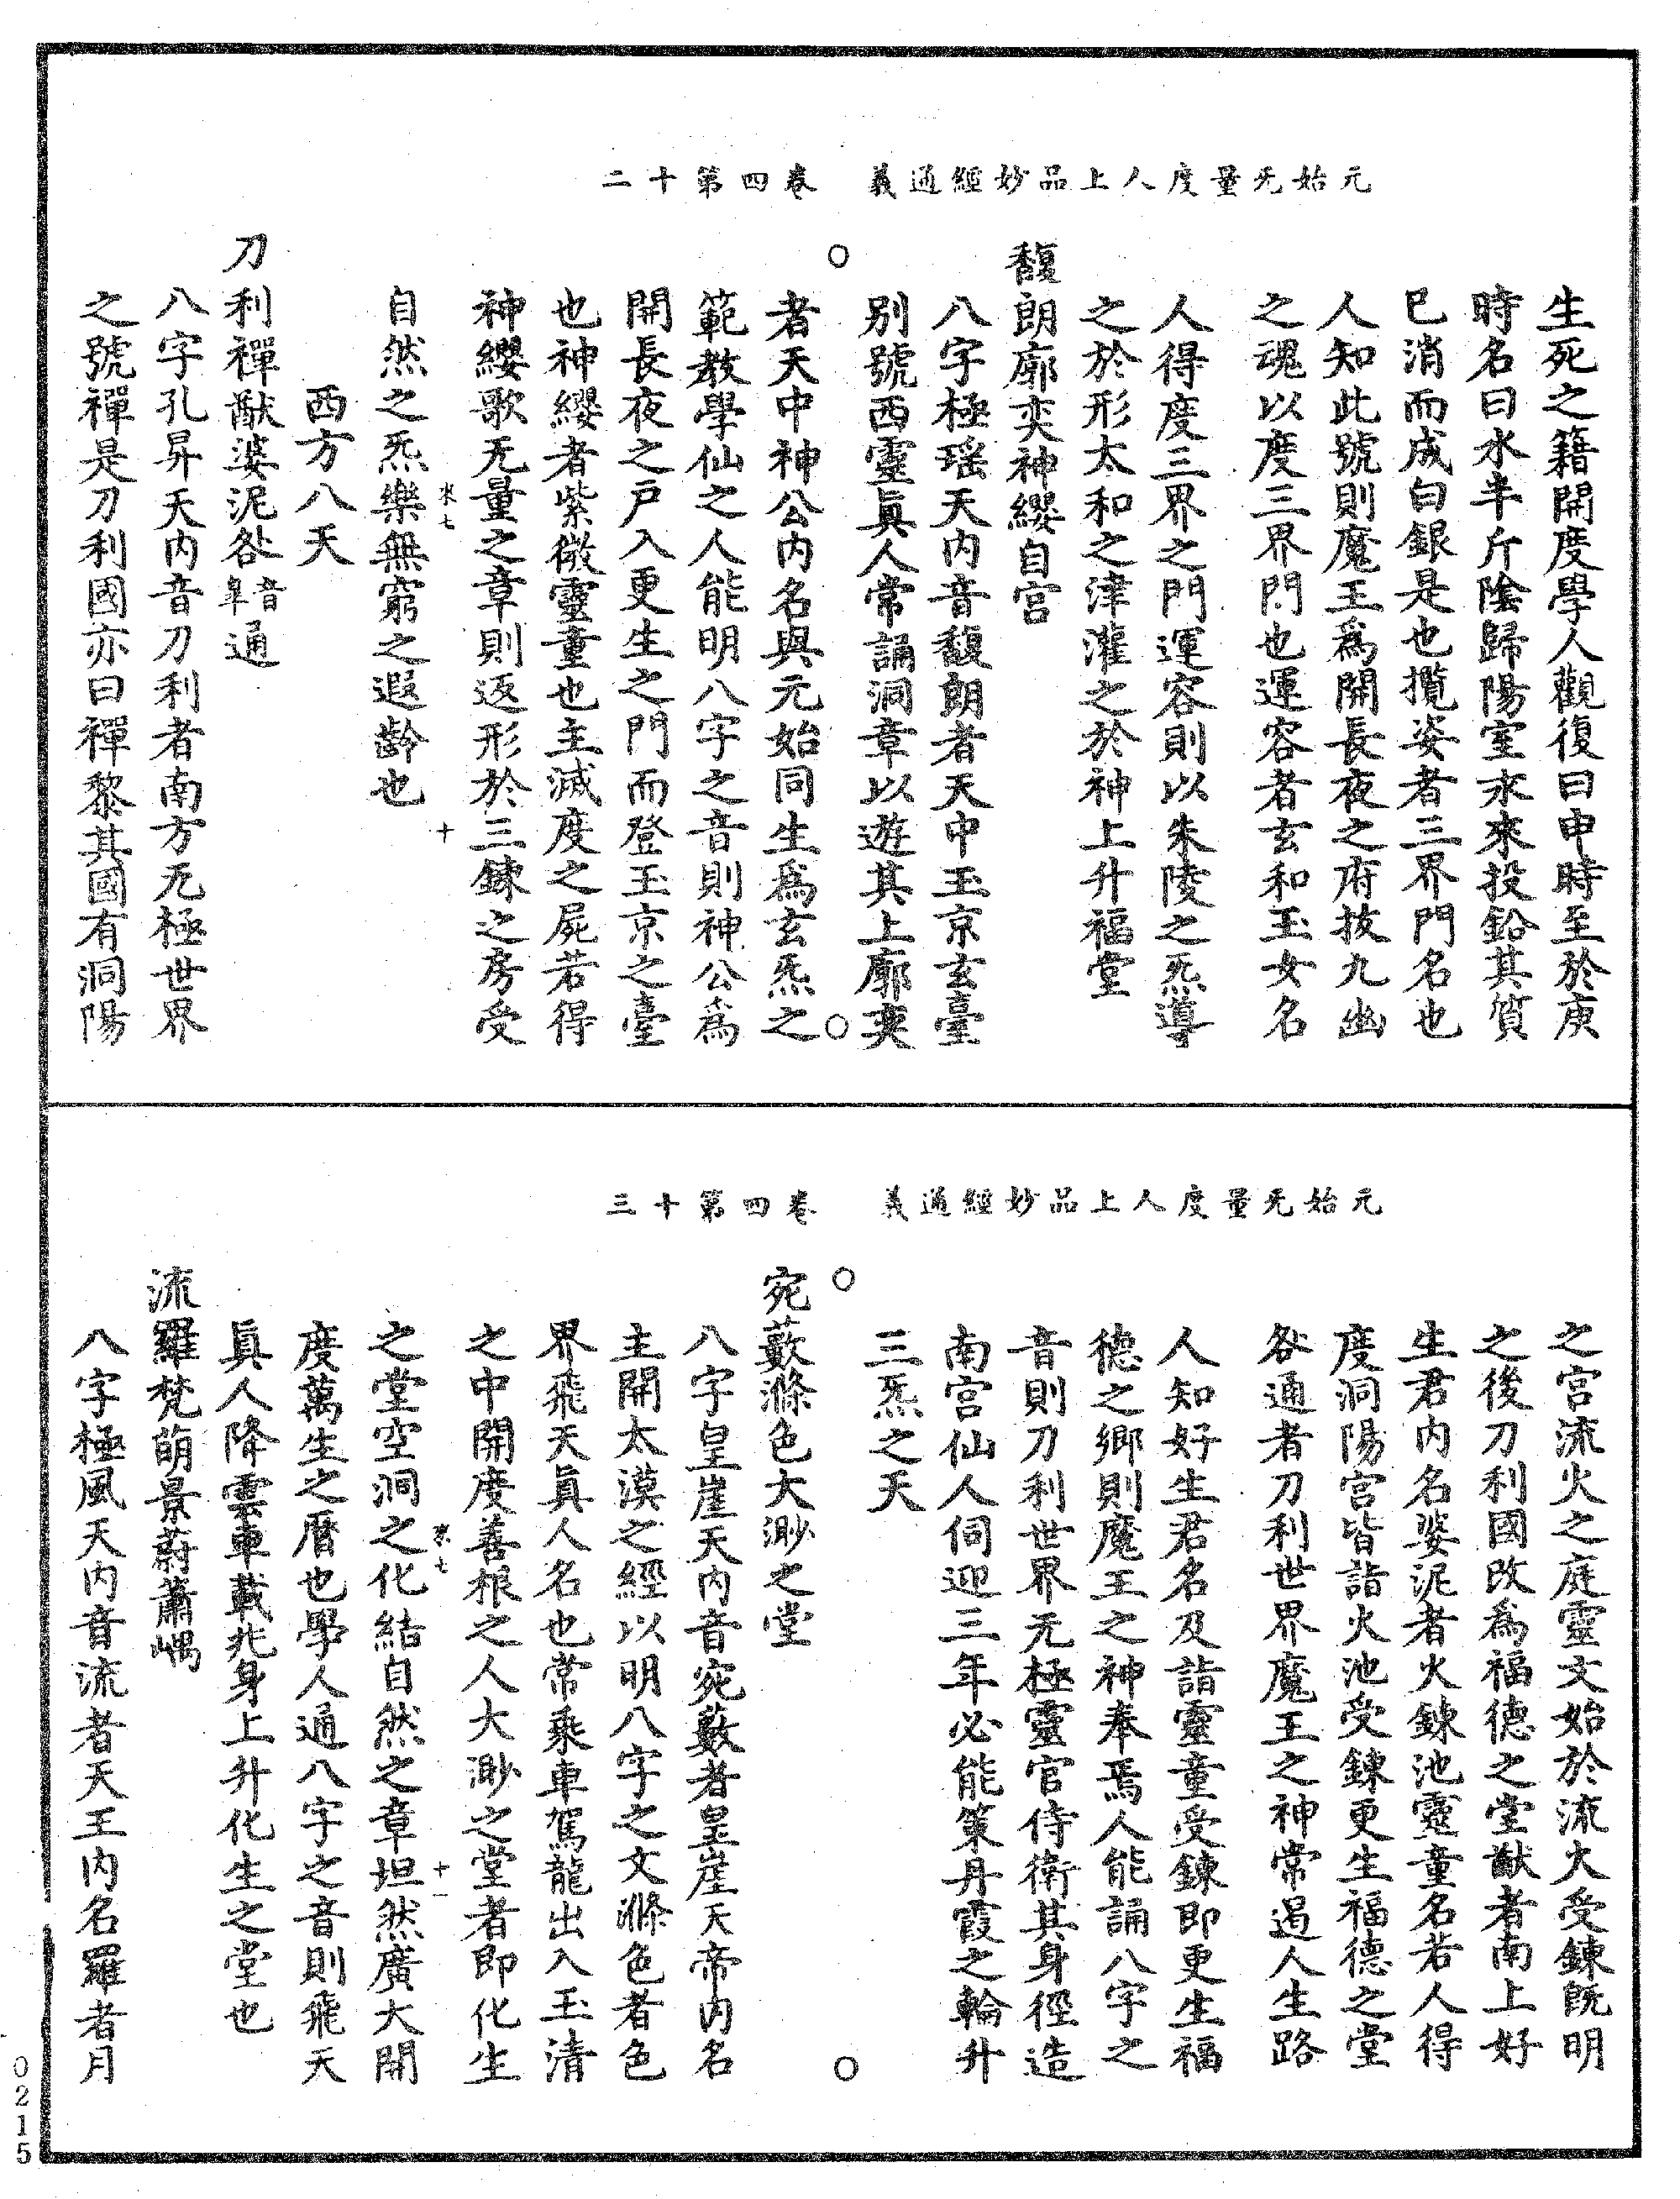 元始无量度人上品妙經通義　卷四第十二
生死之籍開度學人觀復曰申時至於庚
時名曰水半斤陰歸陽室永來投鉛其質
巳消而成白銀是也攬姿者三界門名也
人知此號則魔王爲開長夜之府拔九幽
之魂以度三界門也運容者玄和玉女名
人得度三界之門運容則以朱陵之炁導
之於形太和之津灌之於神上升福堂
馥朗廓奕神纓自宫
八字極瑶天内音馥朗者天中玉京玄臺
别號西靈眞人常誦洞章以遊其上廓奕
者天中神公内名與元始同生爲玄炁之
範教學仙之人能明八字之音則神公爲
開長夜之戸入更生之門而登玉京之臺
也神纓者紫微靈童也主滅度之屍若得
神纓歌无量之章則返形於三錬之房受
來七　十
自然之炁樂無窮之遐齡也
西方八天
刀利禪猷婆泥咎音臯通
八字孔昇天内音刀利者南方无極世界
之號禪是刀利國亦曰禪黎其國有洞陽
元始无量度人上品妙經通義　卷四第十三
之宫流火之庭靈文始於流火受錬既明
之後刀利國改爲福德之堂猷者南上好
生君内名婆泥者火錬池靈童名若人得
度洞陽宫皆詣火池受錬更生福德之堂
咎通者刀利世界魔王之神常遏人生路
人知好生君名及詣靈童受錬即更生福
德之鄉則魔王之神奉焉人能誦八字之
音則刀利世界无極靈官侍衛其身徑造
南宫仙人伺迎三年必能策丹霞之輪升
三炁之天
宛藪滌色大渺之堂
八字皇崖天内音宛藪者皇崖天帝内名
主開太漠之經以明八字之文滌色者色
界飛天眞人名也常乘車駕龍出入玉清
之中開度善根之人大渺之堂者即化生
來七　十一
之堂空洞之化結自然之章坦然廣大開
度萬生之曆也學人通八字之音則飛天
眞人降雲車載兆身上升化生之堂也
流羅梵萌景蔚蕭嵎
八字極風天内音流者天王内名羅者月
0215